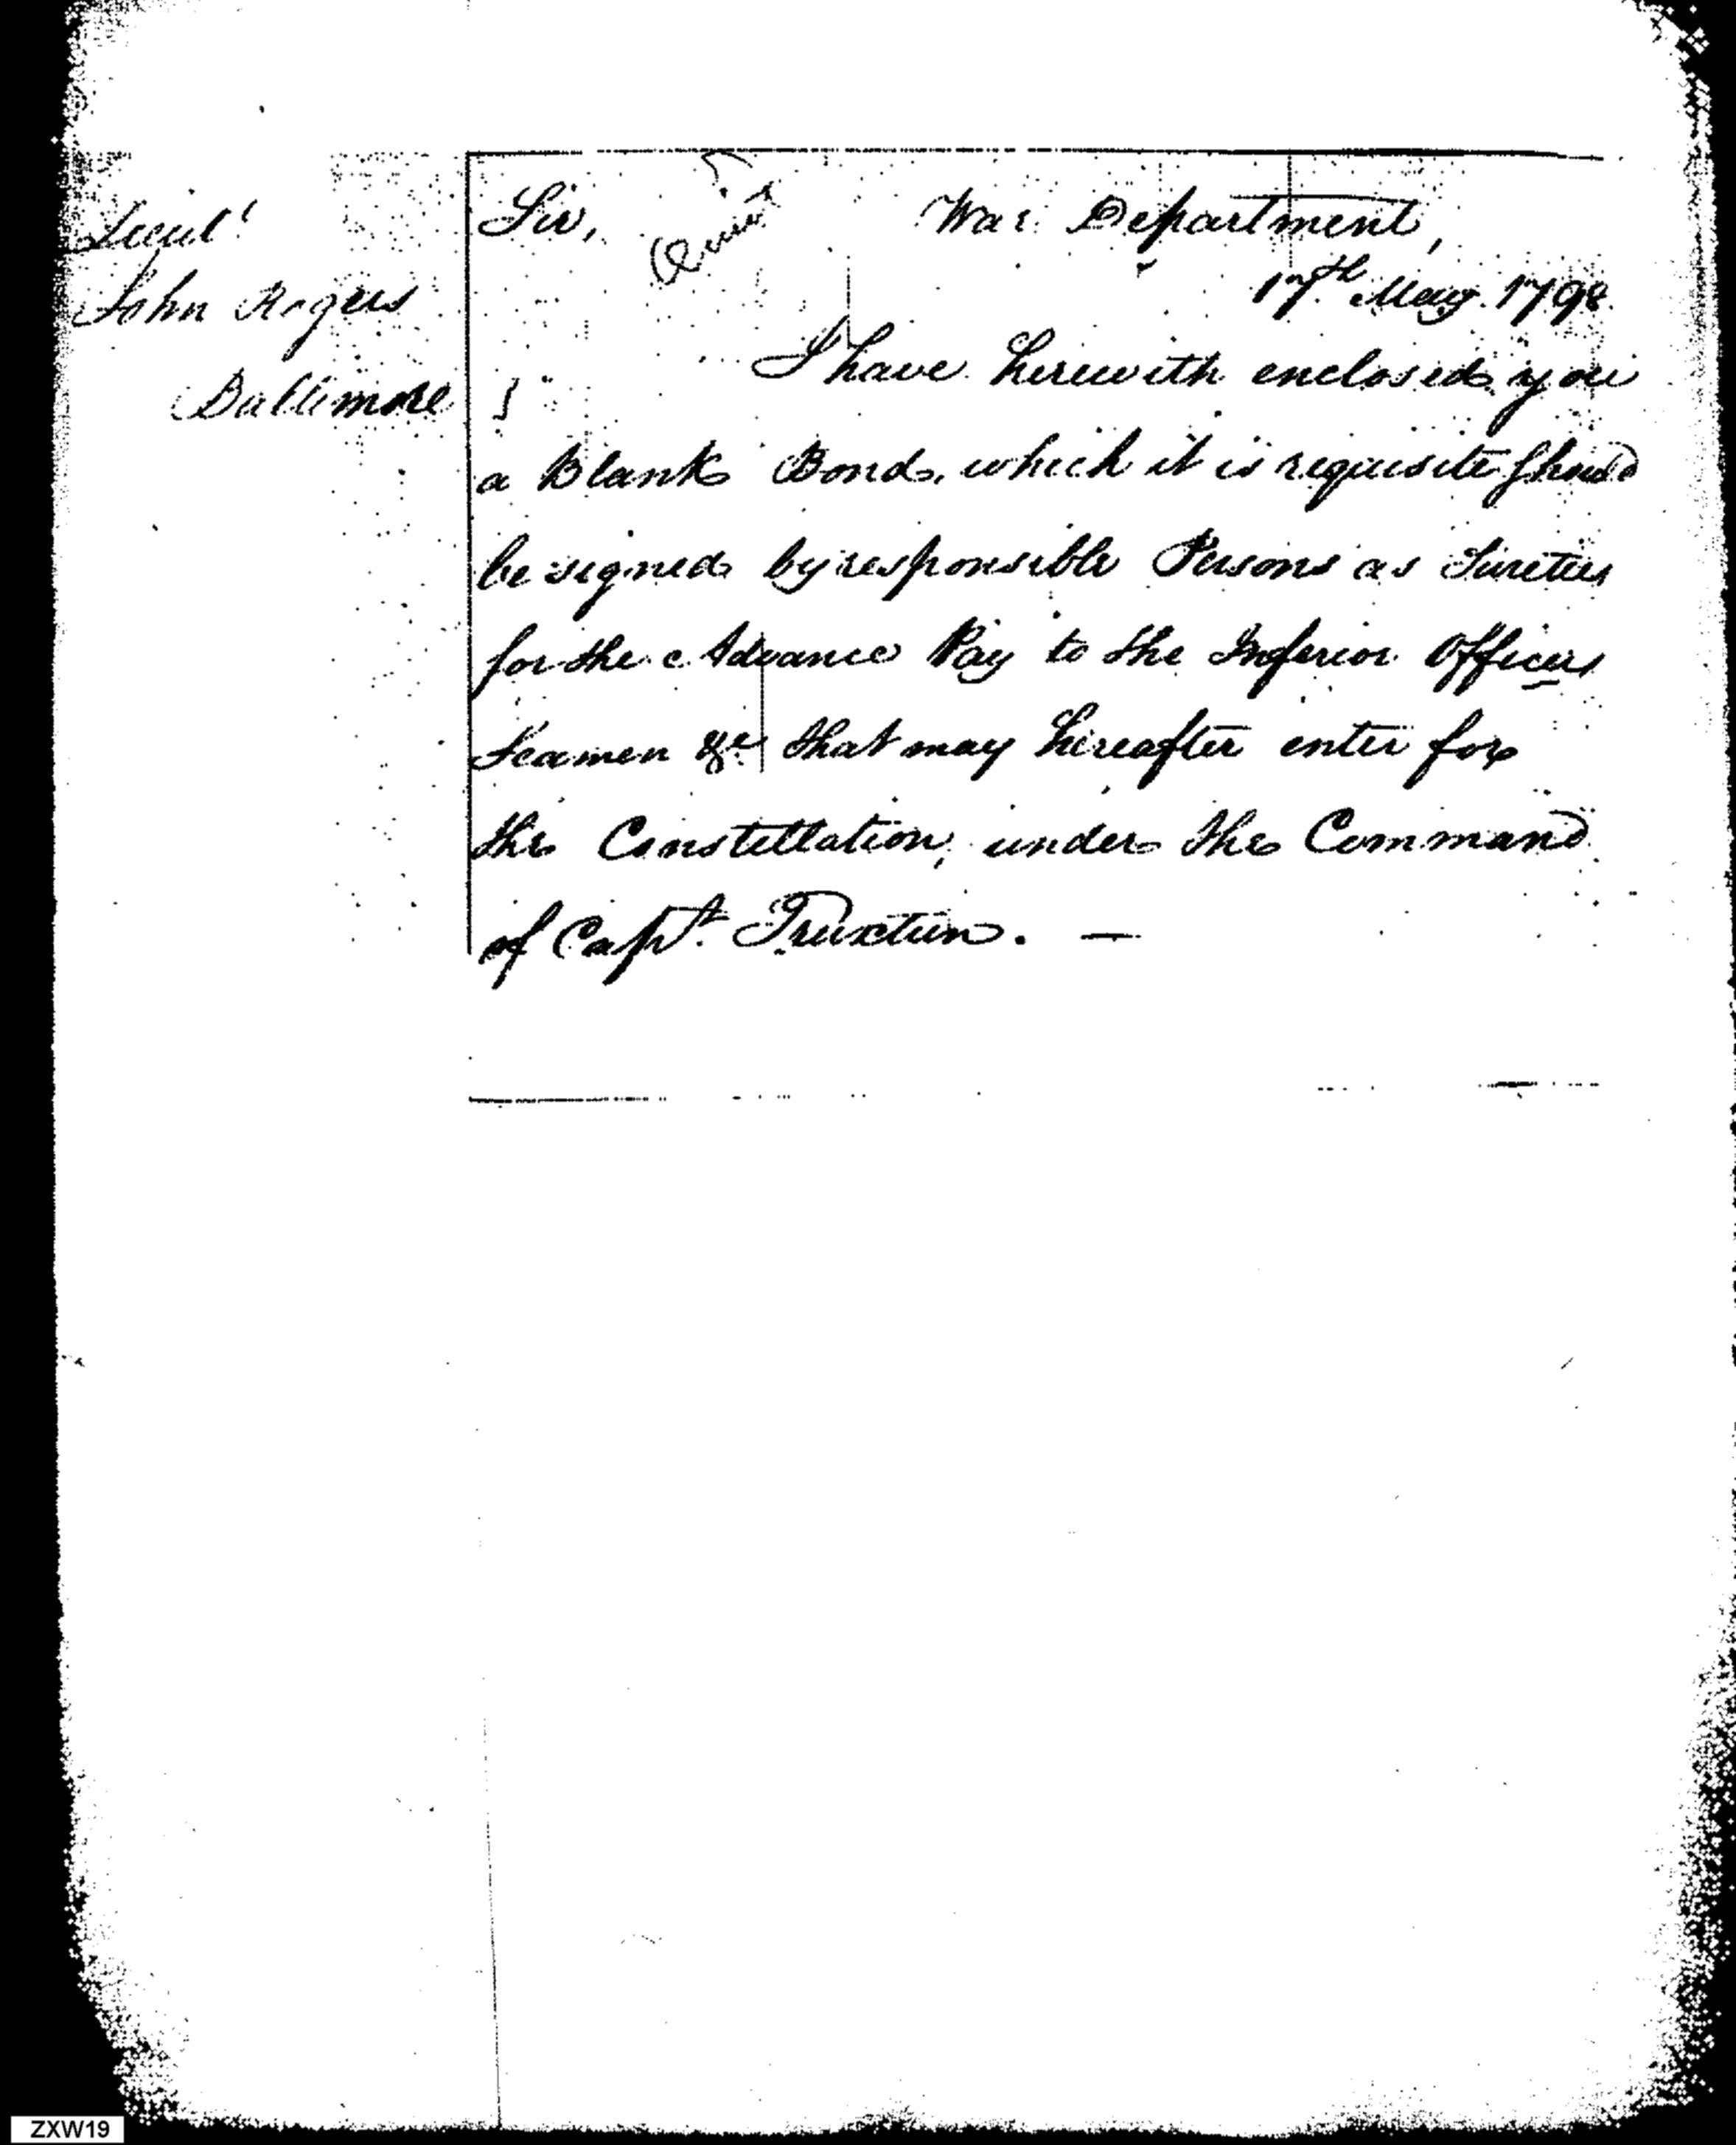 Lieut.
John Rogers
Baltimore }
Sir,
War Department,
17th May. 1798.
I have herewith enclosed you
a Blank Bond, which it is requisite should
be signed by responsible Persons as Sureties
for the Advance Pay to the Inferior Officers
Seamen &c that may hereafter enter for
the Constellation, under the Command
of Capt. Truxtun. —
ZXW19